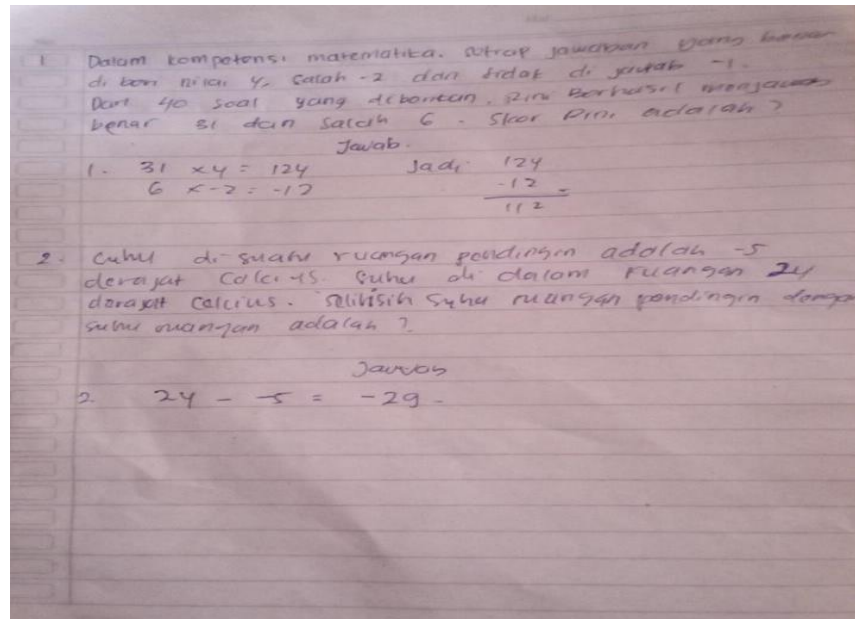 1 Dalam kompetensi matematika. setiap jawaban yang benar
di beri nilai 4, salah -2 dan tidak di jawab -1.
Dari 40 soal yang diberikan, Rini Berhasil menjawab
benar 31 dan salah 6. Skor Rini adalah?
Jawab.
1. 31 x4 = 124 Jadi 124
6 x-2 = -12 -12 -
112
2. Suhu di suatu ruangan pendingin adalah -5
derajat Celcius. Suhu di dalam ruangan 24
derajat Celcius. selisih suhu ruangan pendingin dengan
suhu ruangan adalah?
Jawab
2. 24 - -5 = -29 -